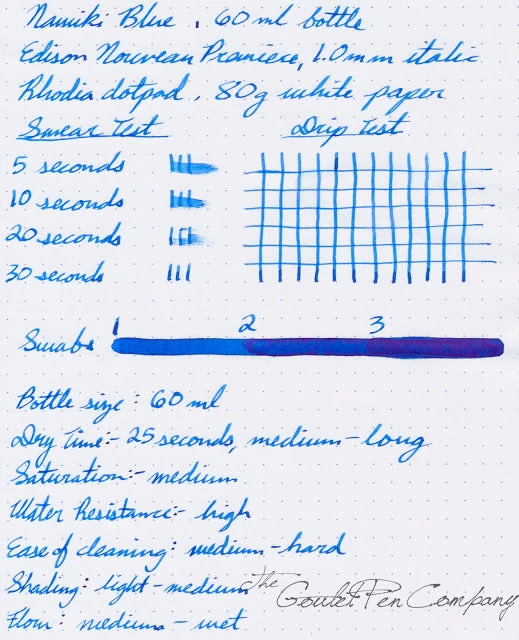 Namiki Blue, 60 ml bottle
Edison Nouveau Premiere, 1.0mm italic
Rhodia dotpad, 80g white paper
Smear Test Drip Test
5 seconds
10 seconds
20 seconds
30 seconds
1 2 3
Swabs
Bottle size: 60 ml
Dry Time:- 25 seconds, medium-long
Saturation:- medium
Water Resistance:- high
Ease of cleaning: medium-hard
Shading: light-medium
The Goulet Pen Company
Flow: medium-wet